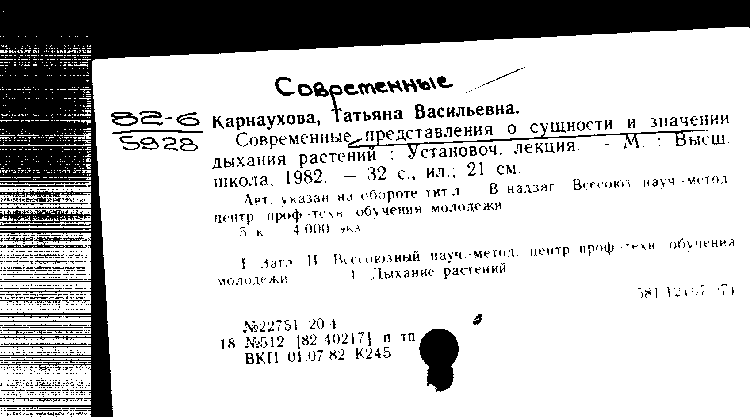 Современные
82-6
5928
Карнаухова, Татьяна Васильевна.
Современные представления о сущности и значении
дыхания растений : Установоч. лекция. - М. : Высш.
школа, 1982. — 32 с., ил.; 21 см.
Авт. указан на обороте тит. л. В надзаг. Всесоюз. науч.-метод.
центр проф.-техн. обучения молодежи
5 к. 4.000 экз.
I Загл. II Всесоюзный науч.-метод. центр проф.-техн. обучения
молодежи 1. Дыхание растений
№22751 20 4
18 №512 [82-40217] п тп
ВКП 01.07.82 К245